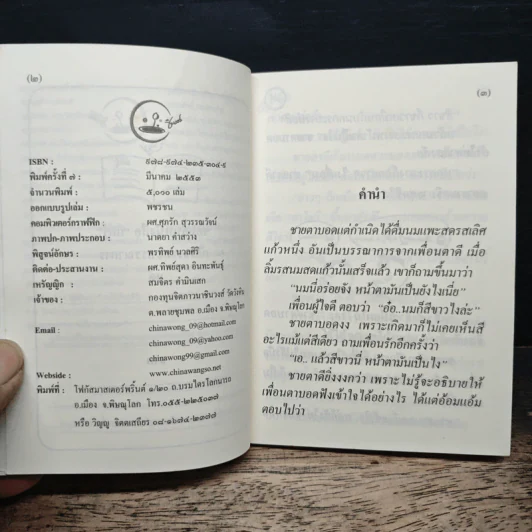 (๒)
ISBN : ๙๗๘-๙๗๔-๒๓๕-๓๐๔-๕
พิมพ์ครั้งที่ ๗ : มีนาคม ๒๕๕๓
จำนวนพิมพ์ : ๕,๐๐๐ เล่ม
ออกแบบรูปเล่ม : พชรชน
คอมพิวเตอร์กราฟฟิก : ผศ.ศุภรัก สุวรรณวัจน์
ภาพปก-ภาพประกอบ : นาตยา คำสว่าง
พิสูจน์อักษร : พรทิพย์ นวลศิริ
ติดต่อ-ประสานงาน : ผศ.ทิพย์สุดา อินทะพันธุ์
เหรัญญิก : สมจิตร คำมินเสก
เจ้าของ : กองทุนจิตภาวนาชินวงศ์
ต.พลายชุมพล อ.เมือง จ.พิษณุโลก
Email : chinawong_09@hotmail.com
chinawong_09@yahoo.com
chinawong99@gmail.com
Webside : www.chinawangso.net
พิมพ์ที่ : โฟกัสมาสเตอร์พริ้นต์ ๑/๒๐ ถ.บรมไตรโลกนารถ
อ.เมือง จ.พิษณุโลก โทร.๐๕๕-๒๒๕๐๓๗
หรือ วิญญู จิตตเสถียร ๐๘-๑๖๗๔-๒๓๗๗
(๓)
คำนำ
ชายตาบอดแต่กำเนิดได้ดื่มนมแพะสดรสเลิศ
แก้วหนึ่ง อันเป็นบรรณาการจากเพื่อนตาดี เมื่อ
ลิ้มรสนมสดแก้วนั้นเสร็จแล้ว เขาก็ถามขึ้นมาว่า
"นมนี่อร่อยจัง หน้าตามันเป็นยังไงเนี่ย"
เพื่อนผู้ใจดี ตอบว่า "อ๋อ..นมก็สีขาวไงล่ะ"
ชายตาบอดงง เพราะเกิดมาก็ไม่เคยเห็นสี
อะไรแม้แต่สีเดียว ถามเพื่อนรักอีกครั้งว่า
"เอ.. แล้วสีขาวนี่ หน้าตามันเป็นไง"
ชายตาดียิ่งงงกว่า เพราะไม่รู้จะอธิบายให้
เพื่อนตาบอดฟังเข้าใจได้อย่างไร ได้แต่อ้อมแอ้ม
ตอบไปว่า